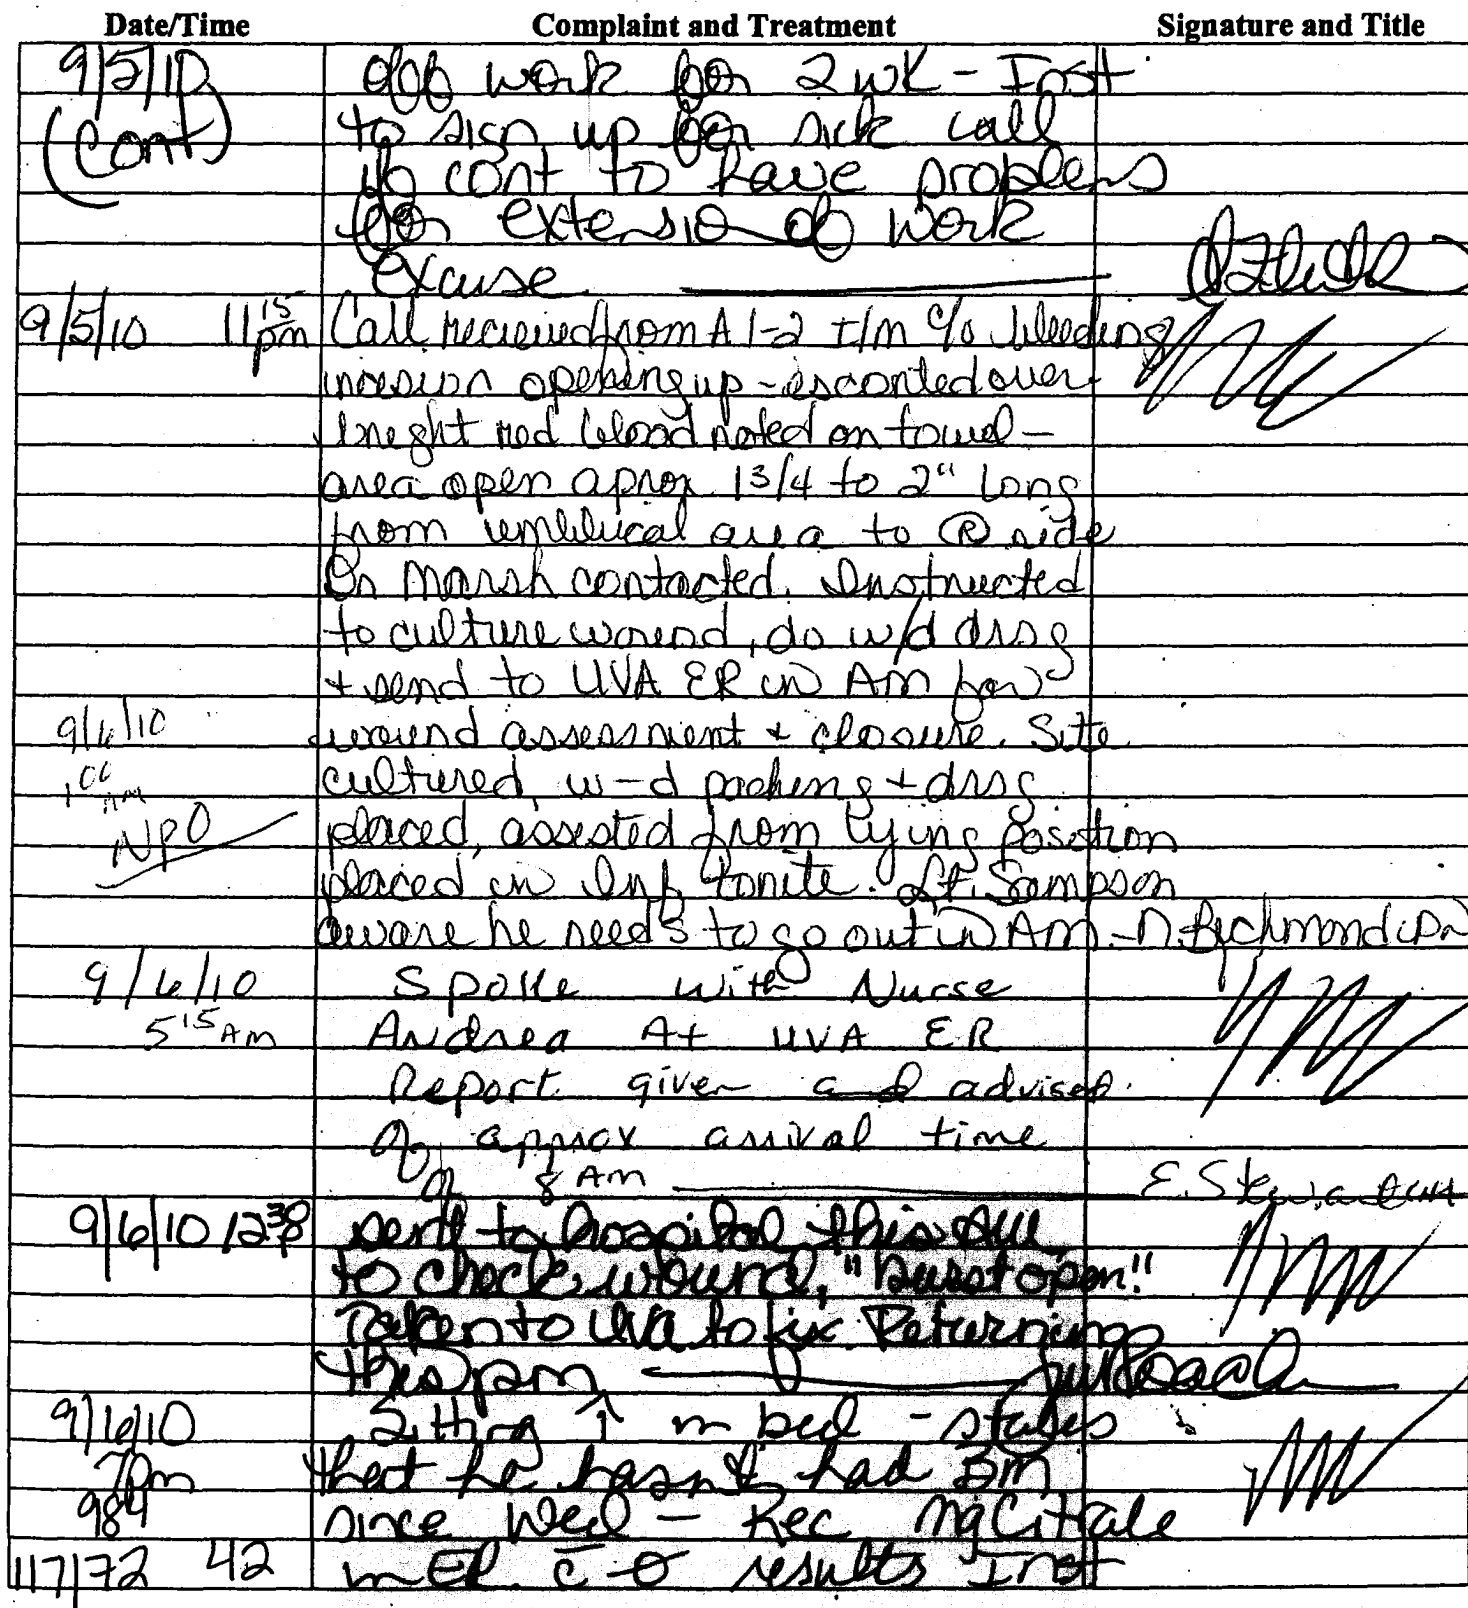 Date/Time Complaint and Treatment Signature and Title
9/5/10 off work for 2 wk - Inst
(Cont) to sign up for sick call
if cont to have problems
for extension of work
excuse
9/5/10 11 15 pm Call recieved from A 1-2 I/m c/o bleeding
incesion opening up - esconted over
bright red blood noted on towel -
area open aprox 1 3/4 to 2" long
from umbilical area to Ⓡ side
Dr Marsh contacted. Instructed
to culture wound, do w/d drsg
+ send to UVA ER in AM for
9/6/10 wound assessment + closure. Site
1 00 AM cultured, w-d packing + drsg
NPO placed, assested from lying position
placed in Inf tonite. Lt. Sampson
aware he needs to go out in AM - N. Richmond LPN
9/6/10 Spoke with Nurse
5 15 AM Andrea At UVA ER
Report given and advised
of approx arrival time
of 8 AM E. Stewart
9/6/10 12 30 p sent to hospital this AM
to check wound, "burst open."
Taken to UVA to fix. Returning
this pm
9/6/10 Sitting ↑ in bed - states
7pm that he hasn't had BM
984 since Wed - Rec Mg Citrate
117/72 42 in ER c̄ ⊖ results Inst